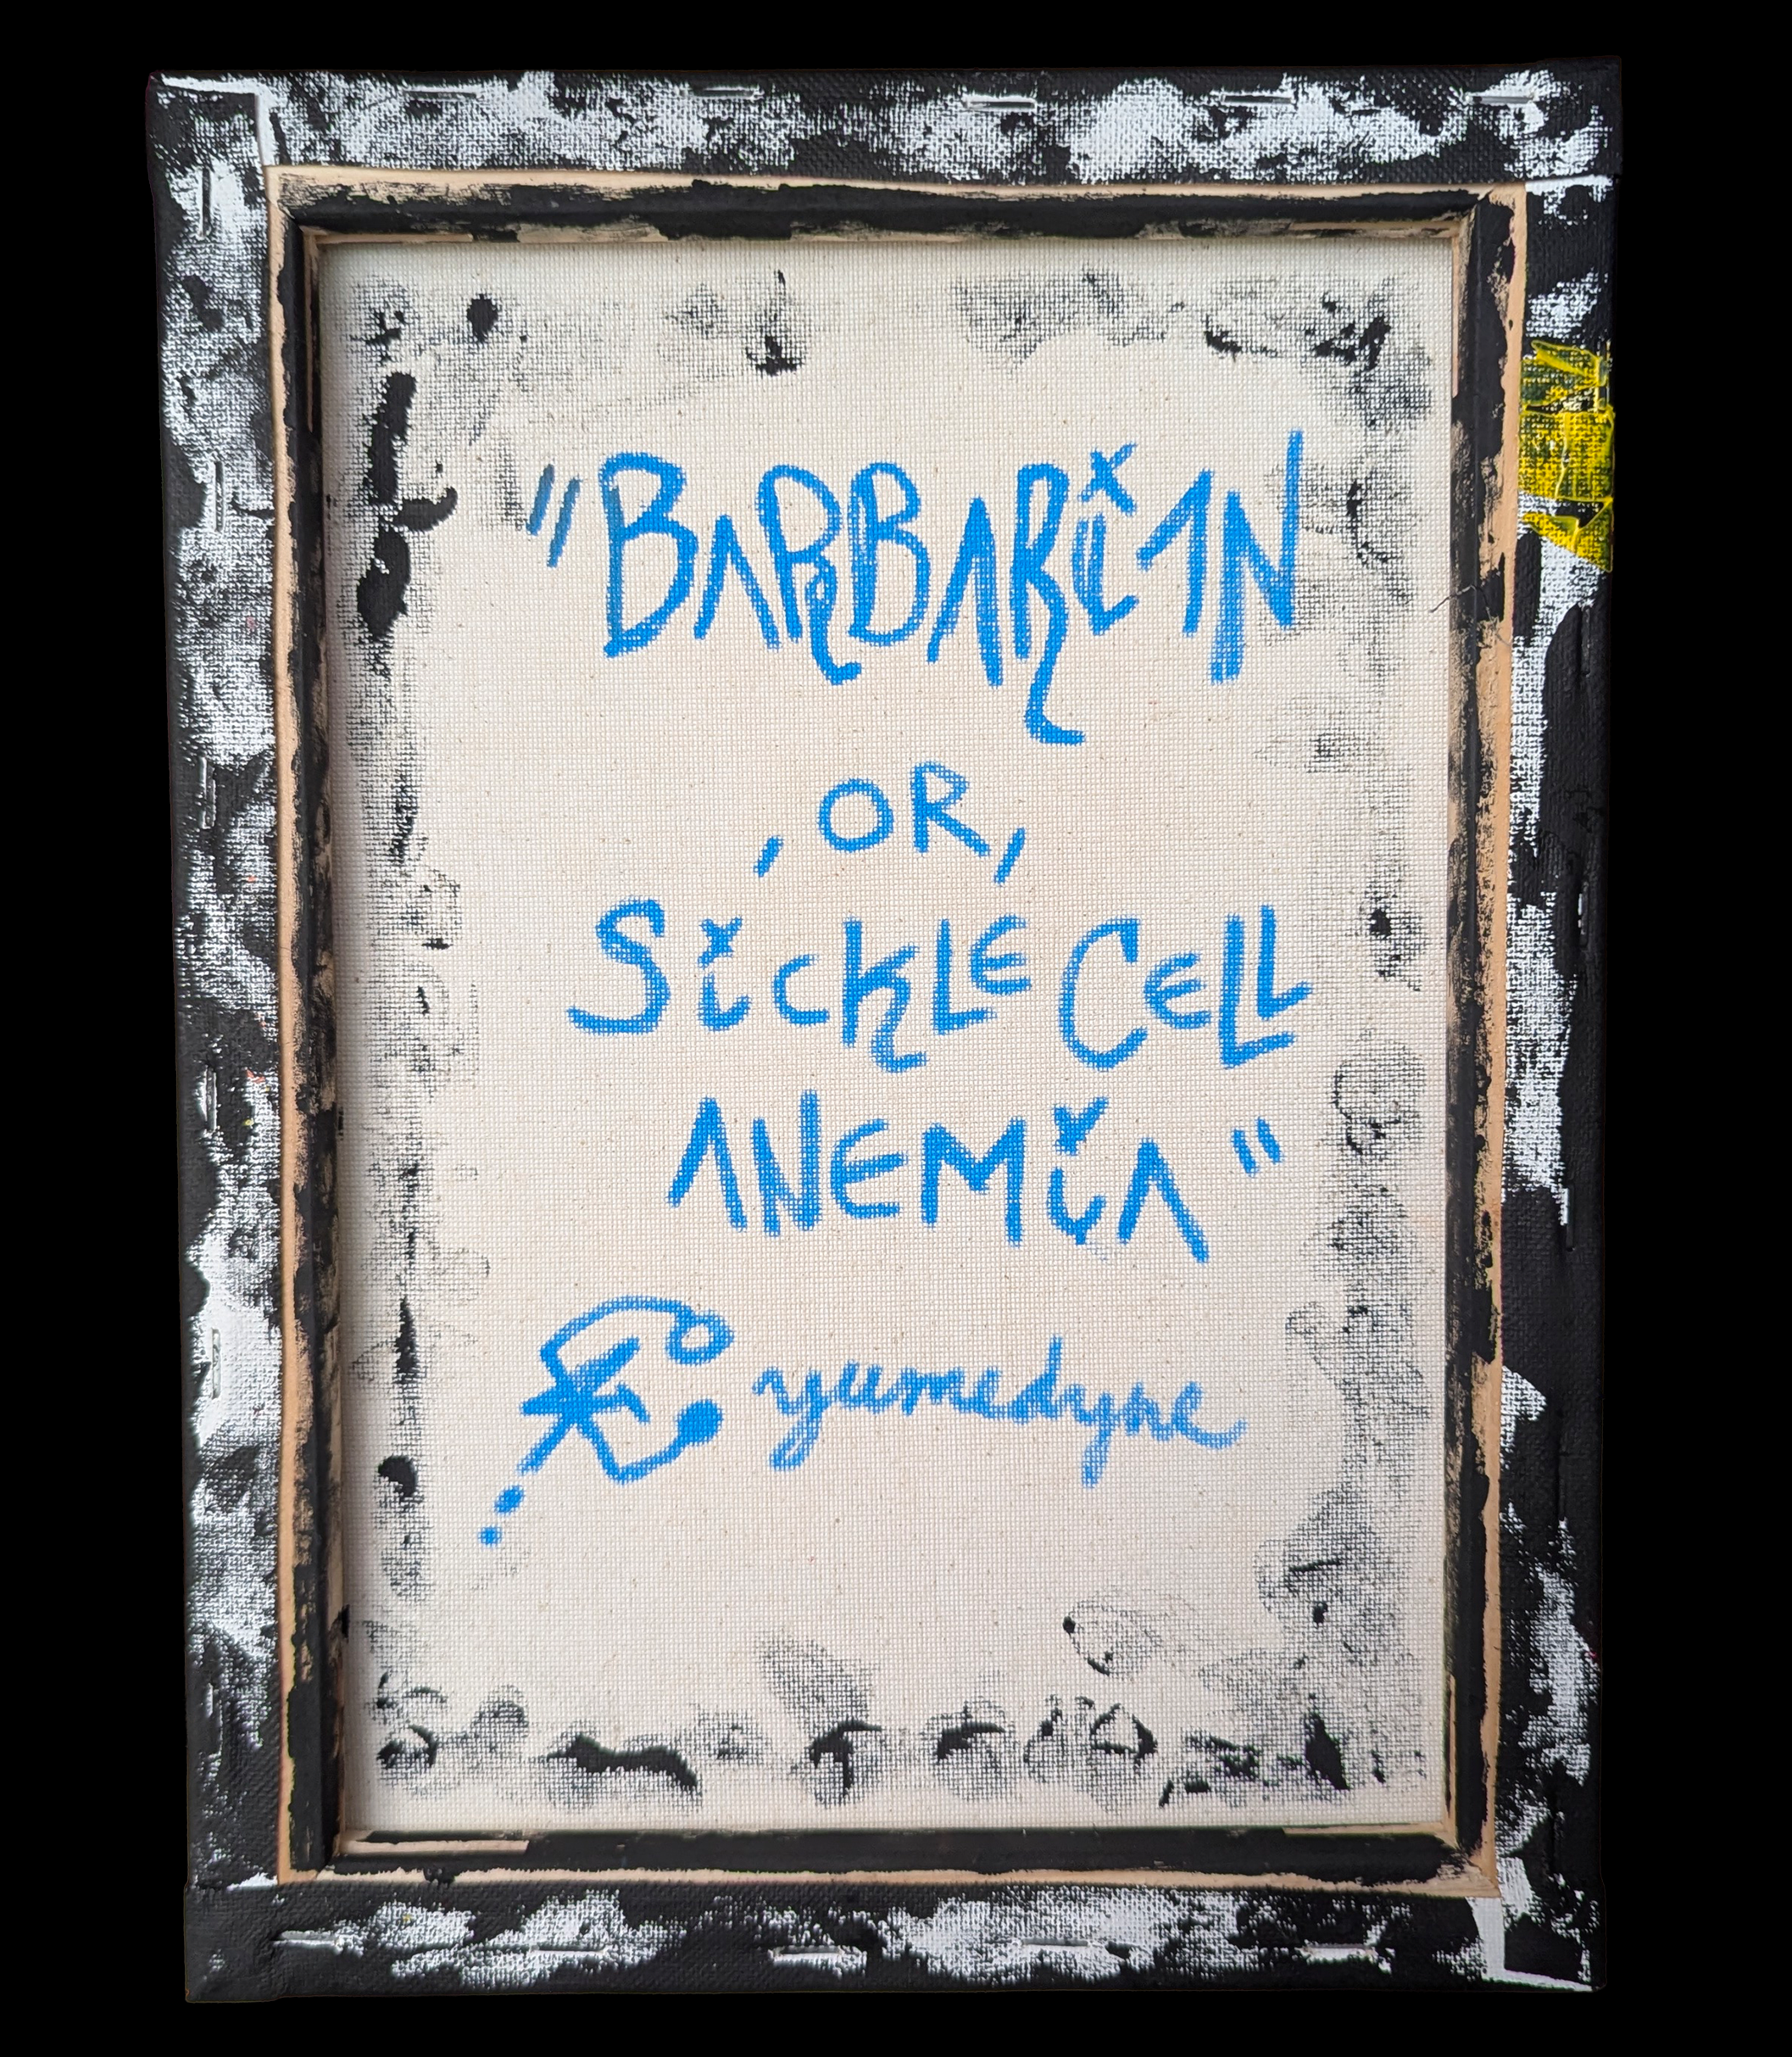 "BARBARiAN
, OR,
SiCKLE CELL
ANEMiA"
yumedyne